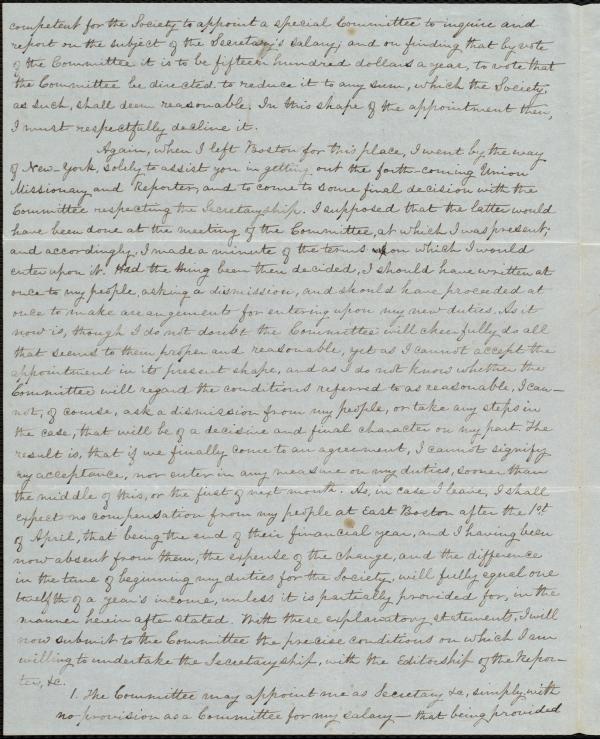 competent for the Society to appoint a special Committee to inquire and
report on the subject of the Secretary's salary; and on finding that by vote
of the Committee it is to be fifteen hundred dollars a year, to vote that
the Committee be directed to reduce it to any sum, which the Society,
as such, shall deem reasonable. In this shape of the appointment then,
I must respectfully decline it.
Again, when I left Boston for this place, I went by the way
of New York, solely to assist you in getting out the forth-coming Union
Missionary and Reporter, and to come to some final decision with the
Committee respecting the Secretaryship. I supposed that the latter would
have been done at the meeting of the Committee, at which I was present;
and accordingly, I made a minute of the terms upon which I would
enter upon it. Had the thing been then decided, I should have written at
once to my people, asking a dismission, and should have proceeded at
once to make arrangements for entering upon my new duties. As it
now is, though I do not doubt the Committee will cheerfully do all
that seems to them proper and reasonable, yet as I cannot accept the
appointment in its present shape, and as I do not know whether the
Committee will regard the conditions referred to as reasonable, I can-
not, of course, ask a dismission from my people, or take any steps in
the case, that will be of a decisive and final character on my part. The
result is, that if we finally come to an agreement, I cannot signify
my acceptance, nor enter in any measure on my duties, sooner than
the middle of this, or the first of next month. As, in case I leave, I shall
expect no compensation from my people at East Boston after the 1st
of April, that being the end of their financial year, and I having been
now absent from them, the expense of the change, and the difference
in the time of beginning my duties for the Society, will fully equal one
twelfth of a year's income, unless it is partially provided for, in the
manner herein after stated. With these explanatory statements, I will
now submit to the Committee the precise conditions on which I am
willing to undertake the Secretaryship, with the Editorship of the Repor-
ter, &c.
1. The Committee may appoint me as Secretary &c, simply with
no provision as a Committee for my salary — that being provided